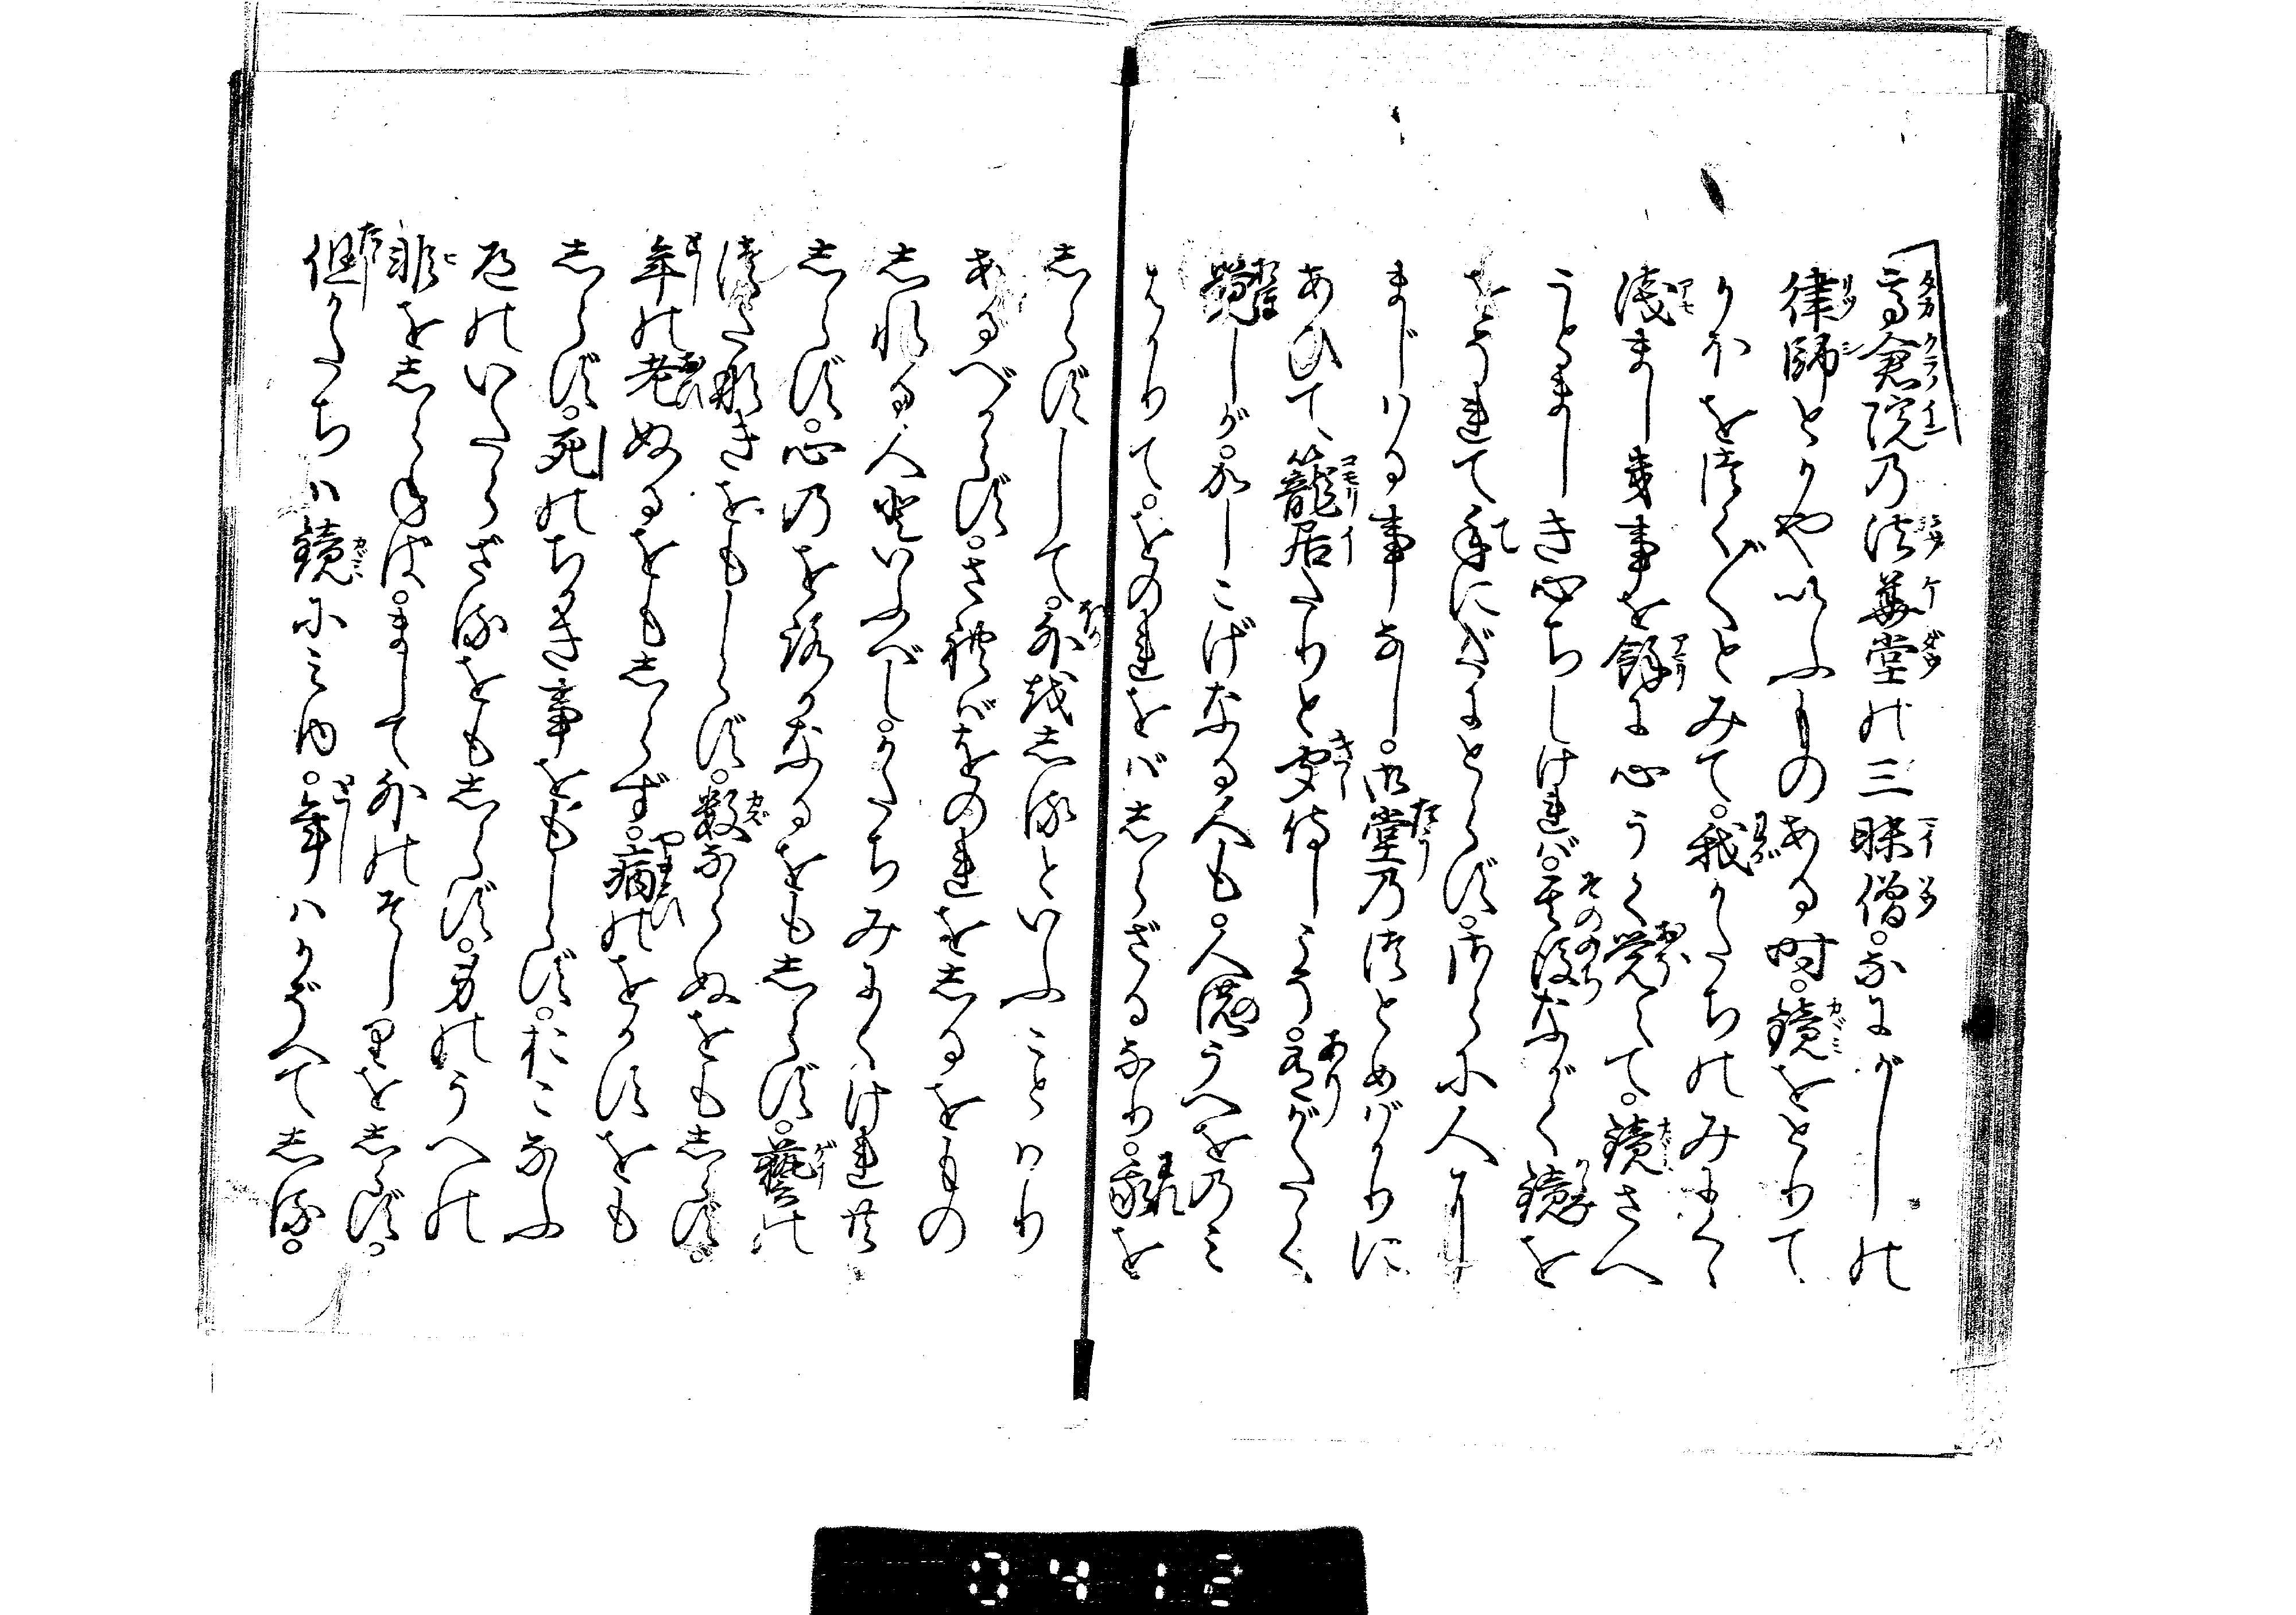 高倉院乃法華堂の三昧僧。なにがしの
律師とかやいふものある時。鏡をとりて
かほをつく〴〵とみて。我かたちのみにくく
浅ましき事を餘に心うく覚えて。鏡さへ
うとましき心ちしければ。其後ながく鏡を
をそれて手にだにとらず。さらに人に
まじはる事なし。御堂乃つとめばかりに
あひて、籠居たりと聞侍しこそ。有がたく
覺しが。かしこげなる人も。人の
うへをのみ
はかりて。をのれをばしらざるなり。我を
しらずして。外をしるといふことはり
あるべからず。さればをのれをしるをもの
しれる人といふべし。かたちみにくけれ共
しらず。心乃をろかなるをもしらず。藝の
つたなきをもしらず。数ならぬをもしらず。
年の老ぬるをもしらず。病のをかすをも
しらず。死のちかき事をもしらず。おこなふ
道のいたらざるをもしらず。身のうへの
非をしらねば。まして外のそしりをしらず。
但かたちは鏡にみゆ。年はかぞへてしる。
0412